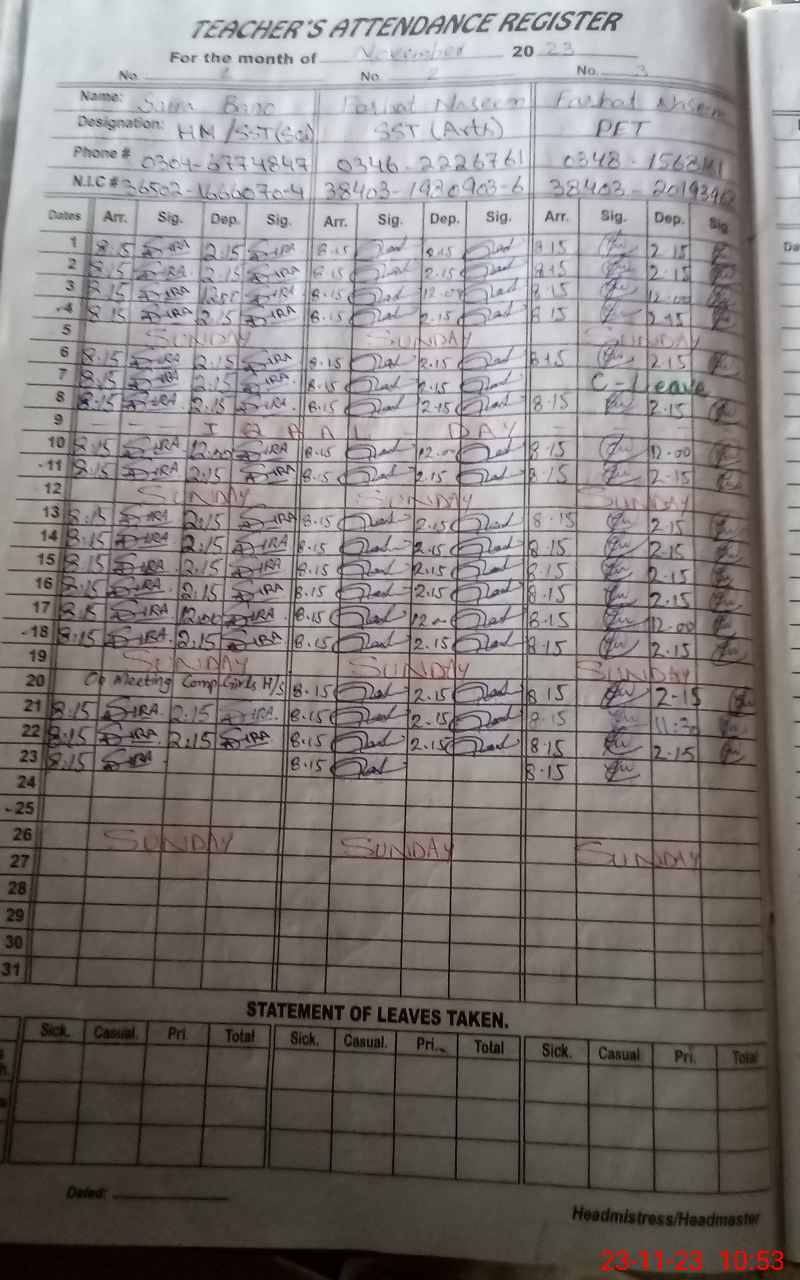 TEACHER'S ATTENDANCE REGISTER
For the month of November 20 23
No. 1 No. 2 No. 3
Name: Saira Bano Farhat Naseem Farhat Naseem
Designation: HM/SST(Sci) SST (Arts) PET
Phone # 0304-6774847 0346-2226761 0348-
N.I.C # 36502-1666070-4 38403-1930903-6 38403-
Dates Arr. Sig. Dep. Sig. Arr. Sig. Dep. Sig. Arr. Sig. Dep. Sig.
1 8.15 SIRA 2.15 SIRA 8.15 2.15 8.15 2.15
2 8.15 SIRA 2.15 SIRA 8.15 2.15 8.15 2.15
3 8.15 SIRA 12.00 SIRA 8.15 12.00 8.15 12.00
4 8.15 SIRA 2.15 SIRA 8.15 2.15 8.15 2.15
5 SUNDAY SUNDAY SUNDAY
6 8.15 SIRA 2.15 SIRA 8.15 2.15 8.15 2.15
7 8.15 SIRA 2.15 SIRA 8.15 2.15 C-Leave
8 8.15 SIRA 2.15 SIRA 8.15 2.15 8.15 2.15
9 IQBAL DAY
10 8.15 SIRA 12.00 SIRA 8.15 12.00 8.15 12.00
11 8.15 SIRA 2.15 SIRA 8.15 2.15 8.15 2.15
12 SUNDAY SUNDAY SUNDAY
13 8.15 SIRA 2.15 SIRA 8.15 2.15 8.15 2.15
14 8.15 SIRA 2.15 SIRA 8.15 2.15 8.15 2.15
15 8.15 SIRA 2.15 SIRA 8.15 2.15 8.15 2.15
16 8.15 SIRA 2.15 SIRA 8.15 2.15 8.15 2.15
17 8.15 SIRA 12.00 SIRA 8.15 12.00 8.15 12.00
18 8.15 SIRA 2.15 SIRA 8.15 2.15 8.15 2.15
19 SUNDAY SUNDAY SUNDAY
20 Meeting Comp Girls H/S 8.15 2.15 8.15 2.15
21 8.15 SIRA 2.15 SIRA 8.15 2.15 8.15 11:30
22 8.15 SIRA 2.15 SIRA 8.15 2.15 8.15 2.15
23 8.15 SIRA 8.15 8.15
24
25
26 SUNDAY SUNDAY SUNDAY
27
28
29
30
31
STATEMENT OF LEAVES TAKEN.
Sick. Casual. Pri. Total Sick. Casual. Pri. Total Sick. Casual Pri. Total
Dated:
Headmistress/Headmaster
23-11-23 10:53